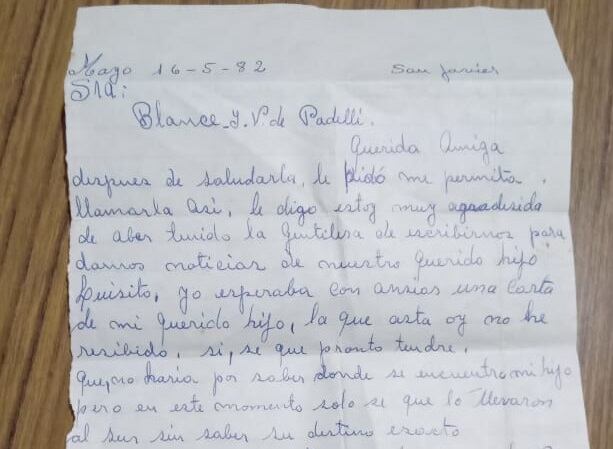 Mayo 16-5-82 San Javier
Sra:
Blance_Y.V. de Padilli.
Querida Amiga
despues de saludarla, le pido me permita
llamarla asi, le digo estoy muy agradesida
de aber tenido la gentilesa de escribirnos para
darnos noticias de nuestro querido hijo
Luisito, yo esperaba con ansias una Carta
de mi querido hijo, la que asta oy no he
resibido, si, se que pronto tendre,
que, no haria por saber donde se encuentra mi hijo
pero en este momento solo se que lo llevaron
al sur sin saber su destino exacto